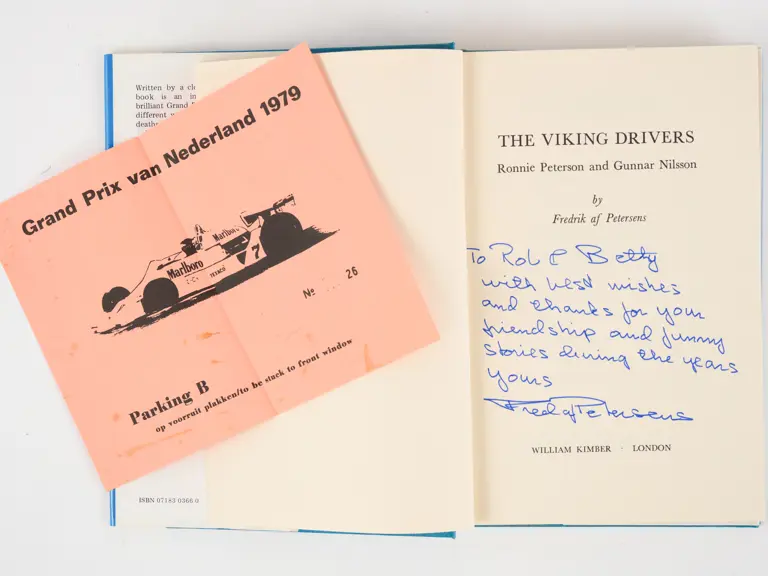 Written by a cl
book is an in
brilliant Grand
different
death
ISBN 07183 0366 0
Grand Prix van Nederland 1979
Marlboro
Marlboro
TEXACO
7
No 26
Parking B
op voorruit plakken/to be stuck to front window
THE VIKING DRIVERS
Ronnie Peterson and Gunnar Nilsson
by
Fredrik af Petersens
To Rob & Betty
with best wishes
and thanks for your
friendship and funny
stories during the years
Yours
Fred af Petersens
WILLIAM KIMBER · LONDON